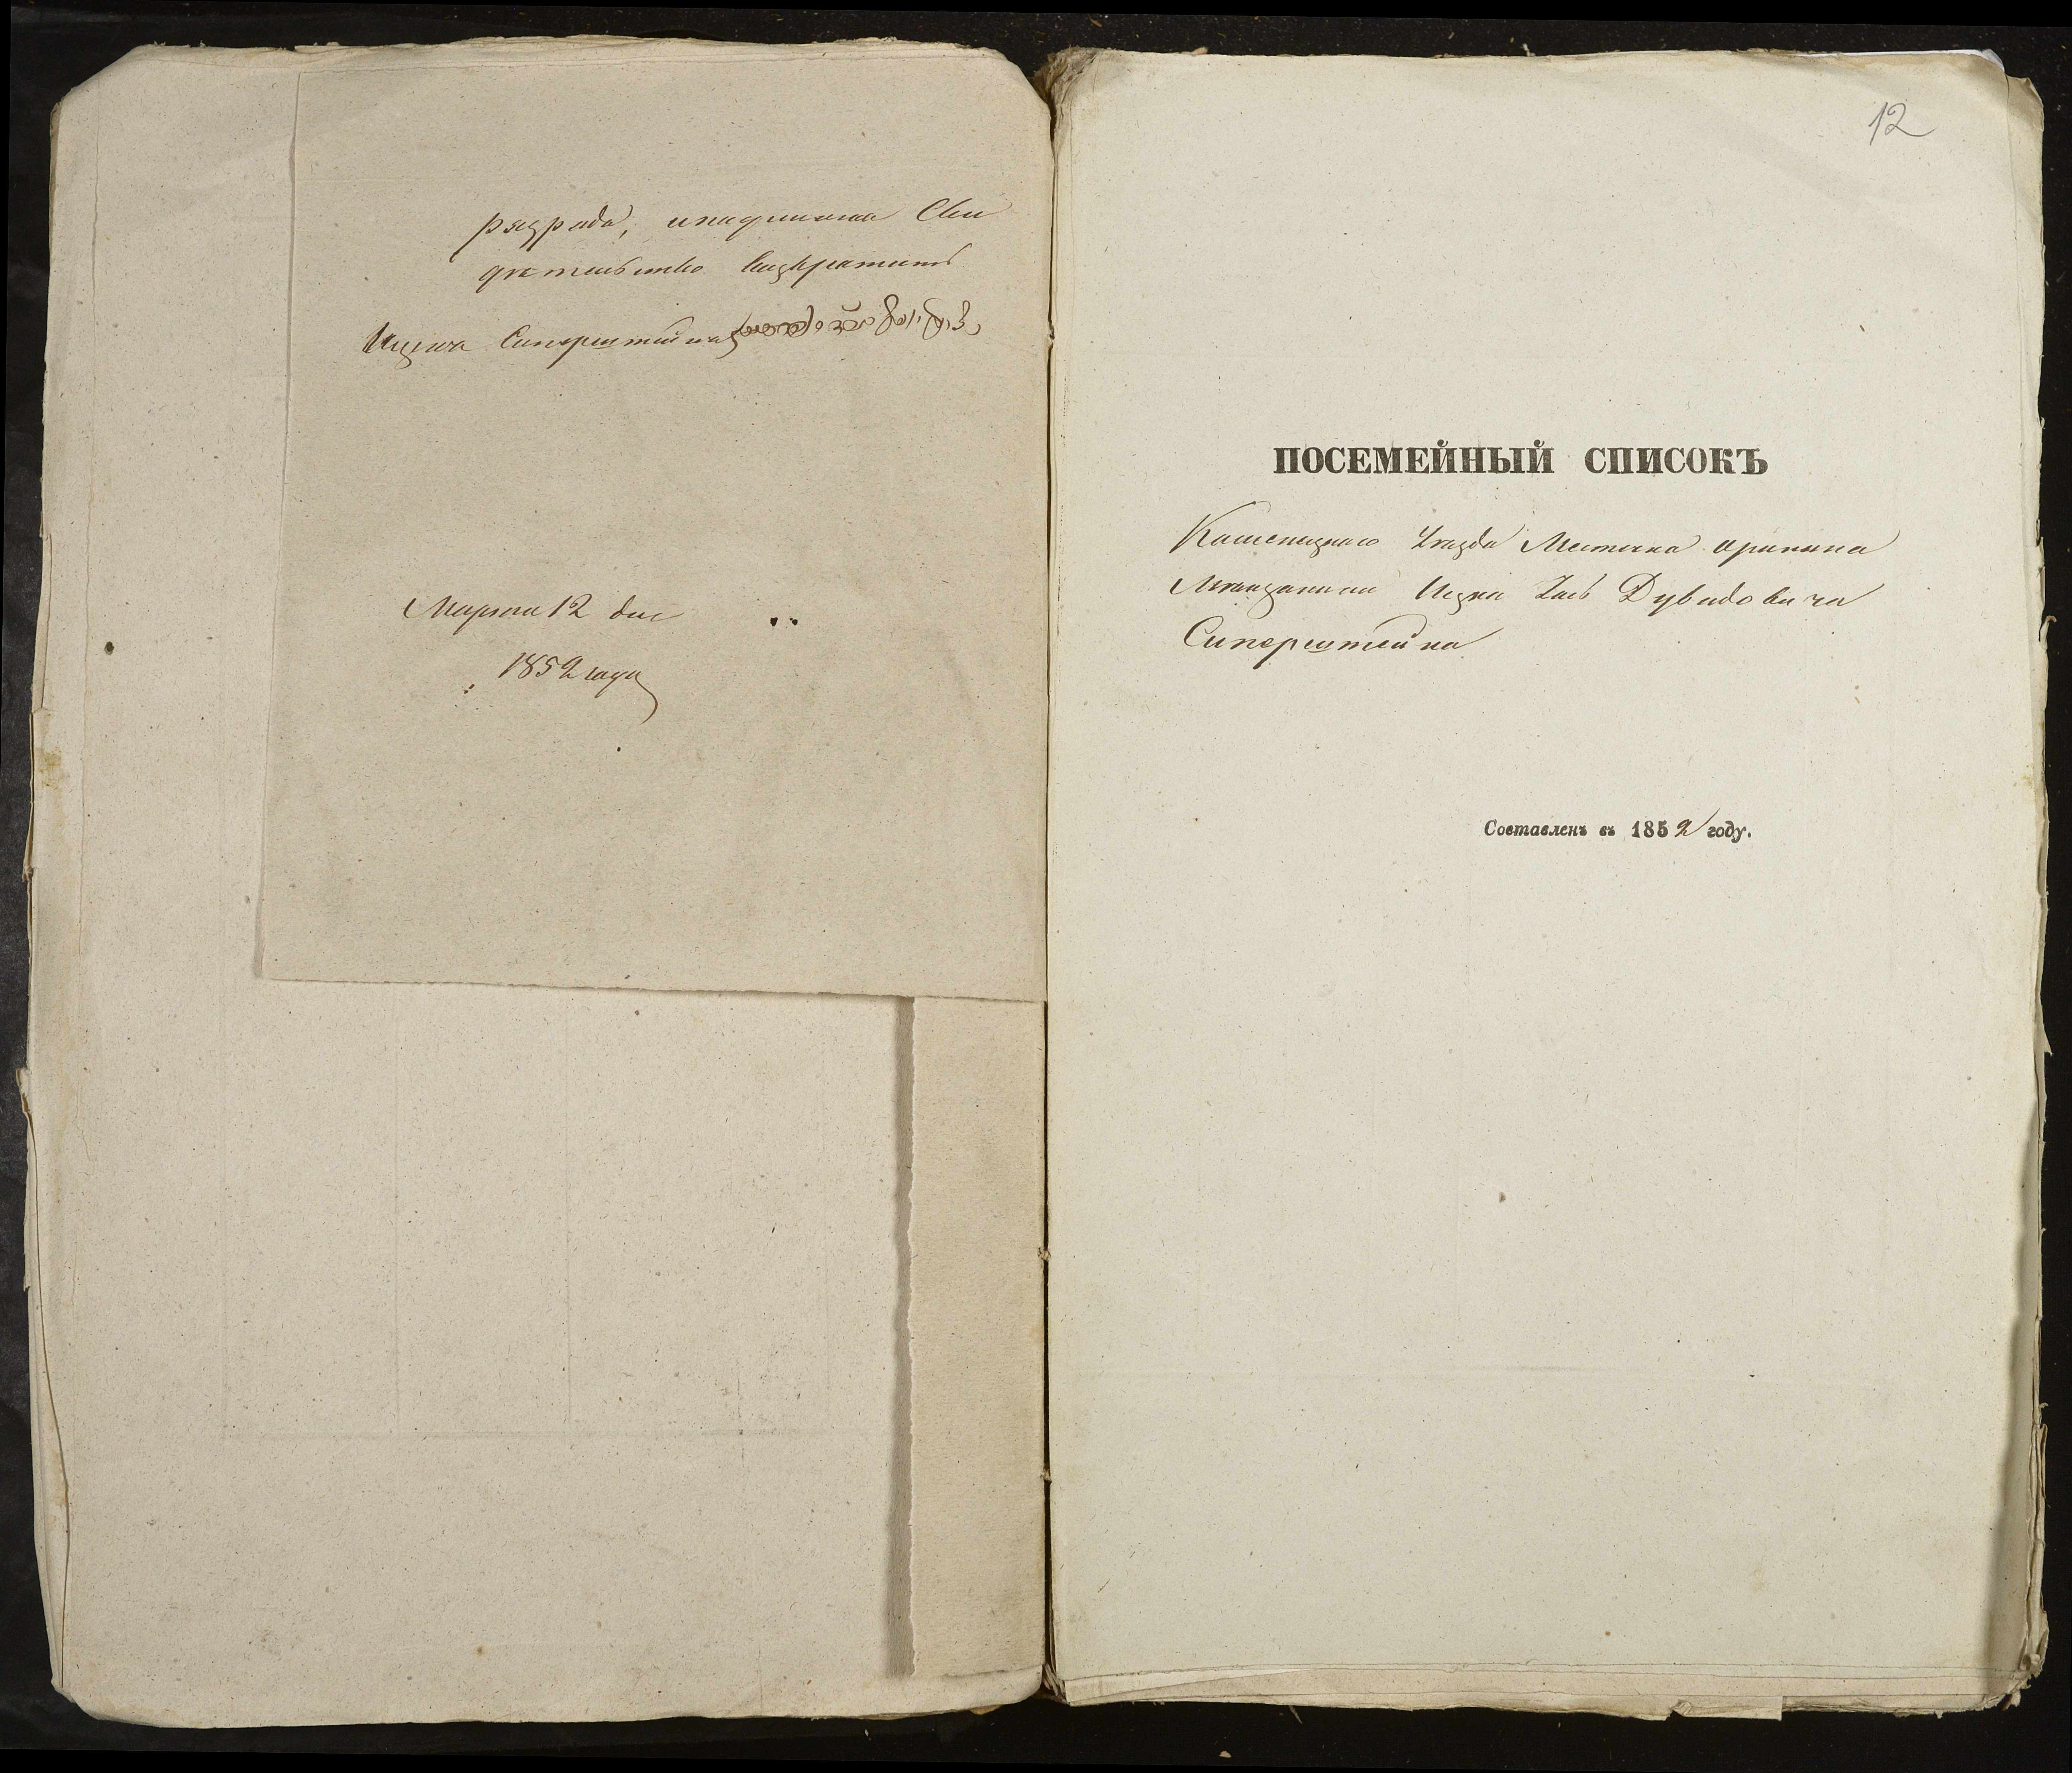 разряда, и подлинное Сви
детельство возвратить
Ицека Сиперштейна
Марта 12 дня
1852 года
12
ПОСЕМЕЙНЫЙ СПИСОКЪ
Каменецкаго Уезда Местечка Оринина
Мещанина Ицка Дувидовича
Сиперштейна
Составленъ въ 1852 году.